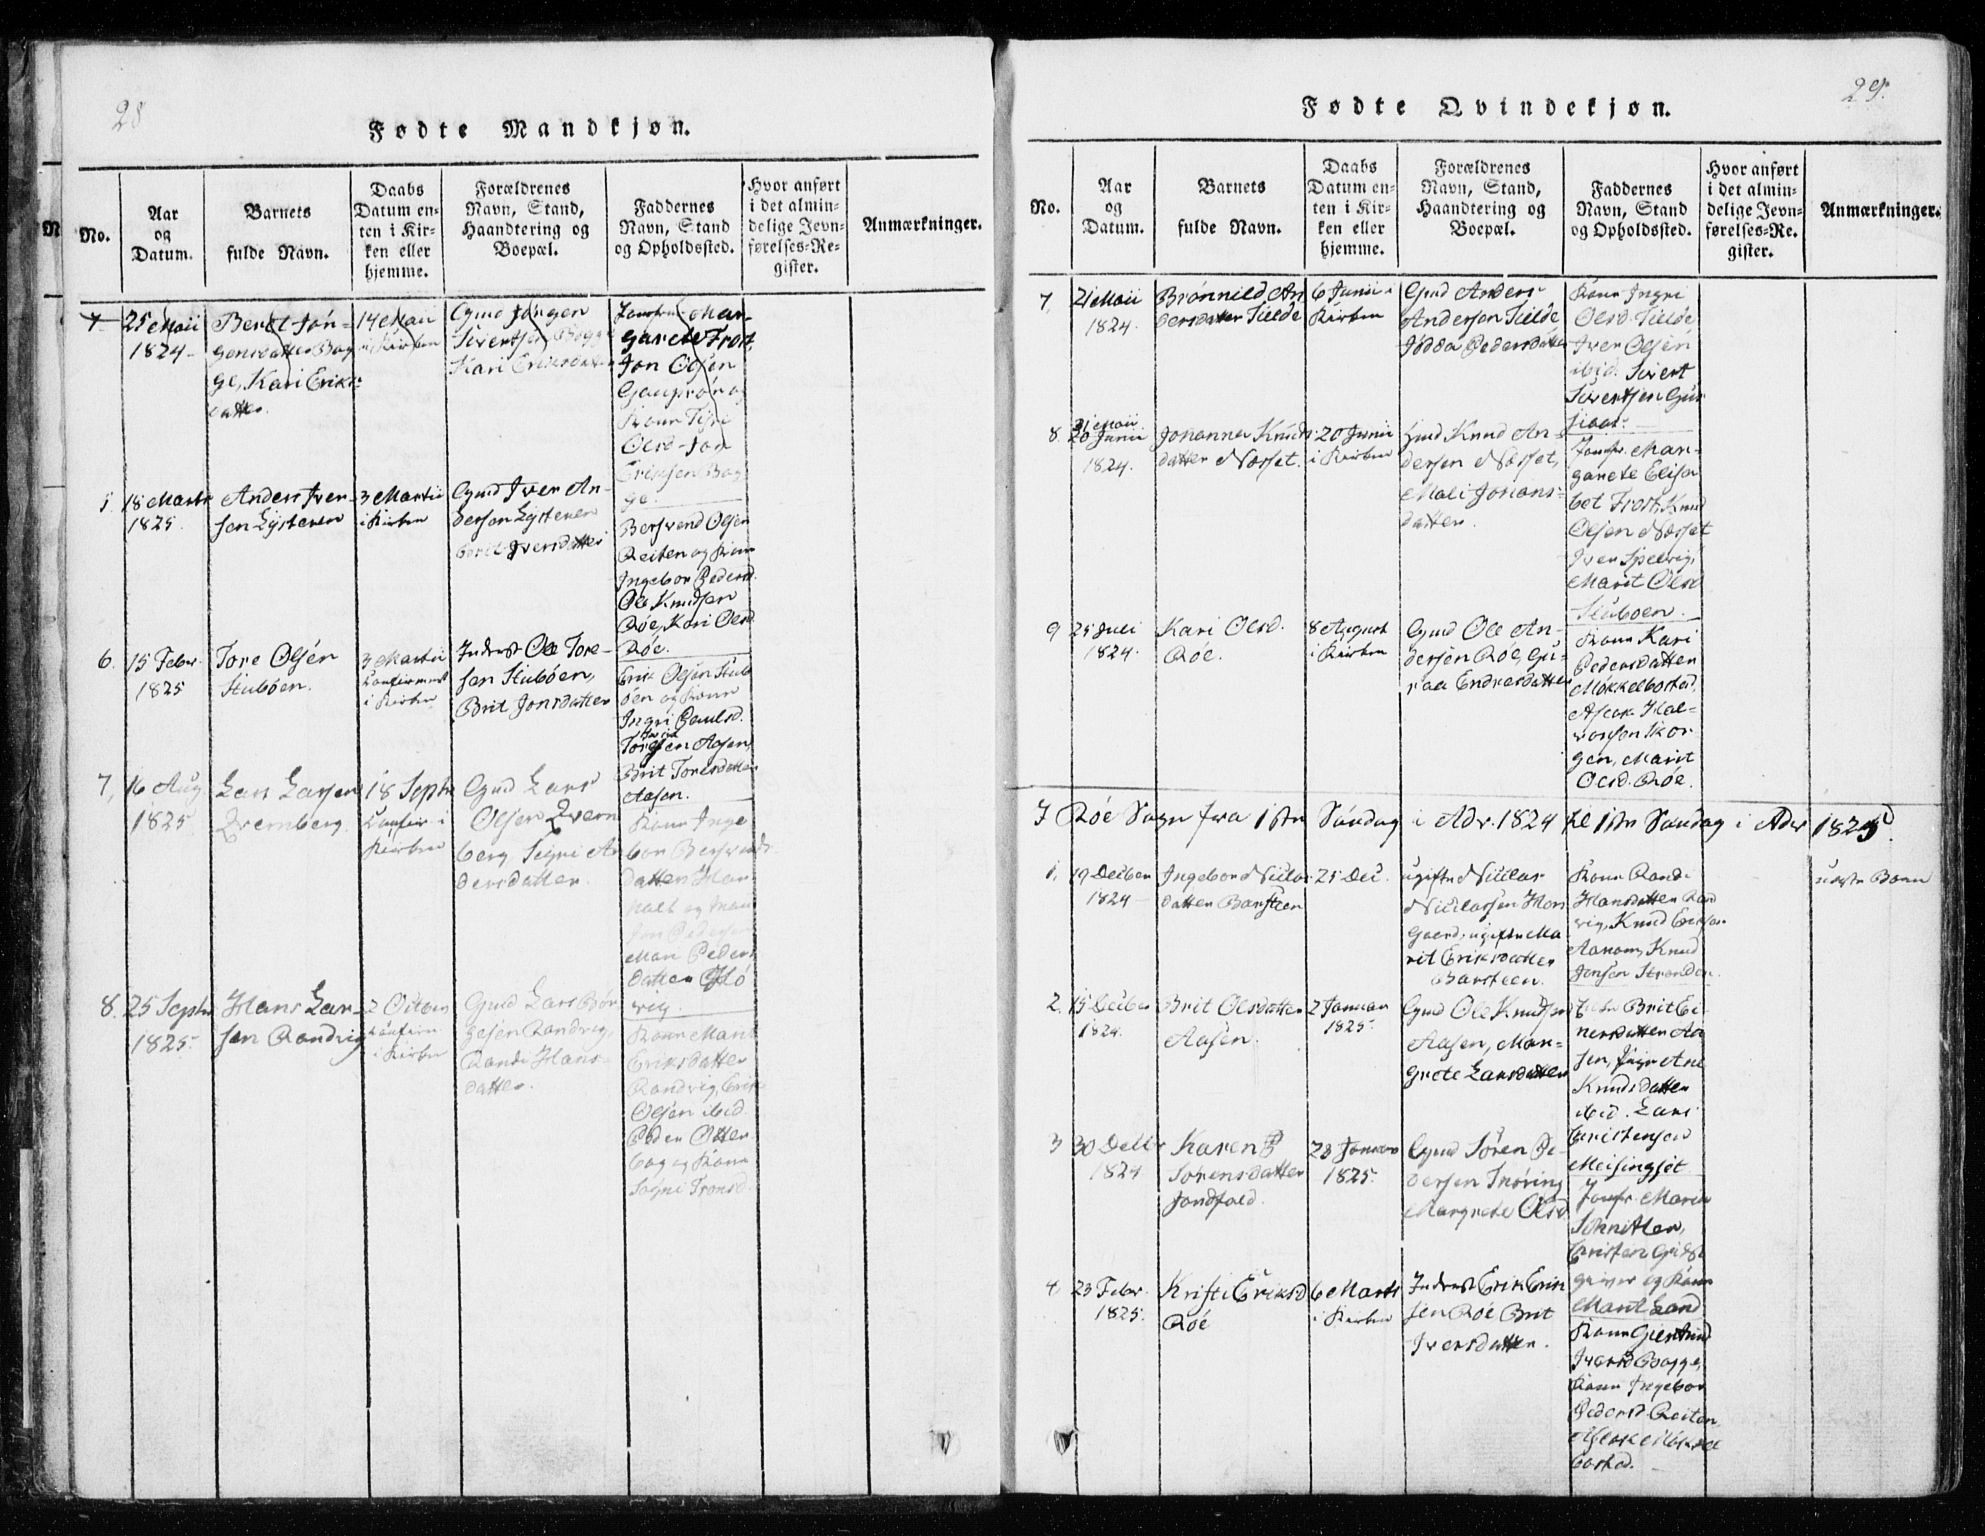 28
Fødte Mandkjøn.
No.
Aar
og
Datum.
Barnets
fulde Navn.
Daabs
Datum en-
ten i Kir-
ken eller
hjemme.
Forældrenes
Navn, Stand,
Haandtering og
Boepæl.
Faddernes
Navn, Stand
og Opholdssted.
Hvor anført
i det almin-
delige Jevn-
førelses-Re-
gister.
Anmærkninger.
25 Maii
1824
Beret Jón-
gensdatter Bog
ge, Kari Eriks-
datter.
14 Maii
i Kirken
Gmd Jörgen
Sivertsen Bogge
Kari Eriksdatter
Jomfru Mar-
garete Frost,
Jon Olsen
Kone Siri
Olsd Jon
Eriksen Bog
ge.
5
18 Marts
1825
Anders Iver-
sen Lysteren
3 Martii
i Kirken
Gmd Iver An-
dersen Lysteren
Berit Iversdatter
Berswend Olsen
Reiten og Kone
Ingebor Pedersd.
Ole Knudsen
Röe, Kari Olsd
Röe.
6.
15 Febr.
1825
Tore Olsén
Stuböen.
3 Martii
Confirmert
i Kirken
Inderst Ole Tore-
sen Stuböen,
Brit Jonsdatter
Erik Olsen Stub
öen og Kone
Ingri Paulsd.
Toresen Aasen,
Brit Toresdatter
Aasen.
7,
16 Aug
1825
Lars Larsen
Qvernberg
18 Septbr
Confir i
Kirken
Gmd Lars
Olsen Qvern
berg Sigri An
dersdatter.
Kone Inge
bor Berswends
datter
Jon Pedersen
Mari Peders
datter
vig.
8.
25 Septbr
1825
Hans Lar-
sen Randvig
2 Octobr
Confirm
i Kirken
Gmd Lars Bór
gesen Randvig,
Randi Hans-
datter.
Kone Marit
Eriksdatter
Randvig, Erik
Olsen ibid.
Peder Otter
bog og Kone
Sigri Tronsd.
29.
Fødte Qvindekjøn.
No.
Aar
og
Datum.
Barnets
fulde Navn.
Daabs
Datum en-
ten i Kir-
ken eller
hjemme.
Forældrenes
Navn, Stand,
Haandtering og
Boepæl.
Faddernes
Navn, Stand
og Opholdssted.
Hvor anført
i det almin-
delige Jevn-
førelses-Re-
gister.
Anmærkninger.
7,
21 Maii
1824.
Brónnild An
dersdatter Tielde
6 Junii i
Kirken
Gmd Anders
Andersen Tielde
Pedersdatter
Kone Ingri
Olsd. Tielde
Iver Olsen
ibid. Sivert
Sivertsen Gus
siaas.
8
31 Maii
20 Junii
1824.
Johanna Knuds
datter Norset.
20 Junii
i Kirken
Gmd Knud An-
dersen Norset,
Mali Johans-
datter.
Jomfr. Mar-
garete Elisa
bet Frost, Knud
Olsen Norset
Iver Spelvig,
Marit Olsd
Stuboen.
9
25 Juli
1824.
Kari Olsd.
Röe.
8 August
i Kirken
Gmd Ole An-
dersen Röe, Gu-
roe Endresdatter
Kone Kari
Pedersdatter
Mókkelbostad,
Aslak Hal-
vorsen Skor
gen, Marit
Olsd. Röe.
I Röe Sogn fra 1ste Söndag i Adv. 1824 til 1ste Söndag i Adv 1825.
1.
19 Decber
1824
Ingebor Niclas
datter Barsteen
25 Dec.
ugifte Niclas
Niclassen Hor
gaard, ugifte Ma
rit Eriksdatter
Barsteen.
Kone Randi
Hansdatter Rand
vig, Knud Eriksen
Knud
Jensen Stranden.
uægte Barn
2.
15 Decber
1824.
Brit Olsdatter
Aasen.
2 Januar
1825.
Gmd Ole Knudsen
Aasen, Mar-
grete Larsdatter
Brit Ei-
nersdatter Aa
sen, Pige Ane
Knudsdatter
ibid. Lars
Cristensen
Meisingset
3
30 Decbr
1824
Karen
Sörensdatter
Jordfald.
23 Januar
1825.
Gmd Sören Pe-
dersen Snóring
Margrete Olsd
Jomfr. Maren
Schnitler,
Cristen
og Kone
Marit Land
4
23 Febr.
1825.
Kristi Eriksd
Röe
6 Marts
i Kirken
Inderst Erik Erik
sen Röe Brit
Iversdatter.
Kone Giertrud
Iversd Bogge,
Kone Ingebor
Pedersd Reiten
Aslak Mókkel
bostad.